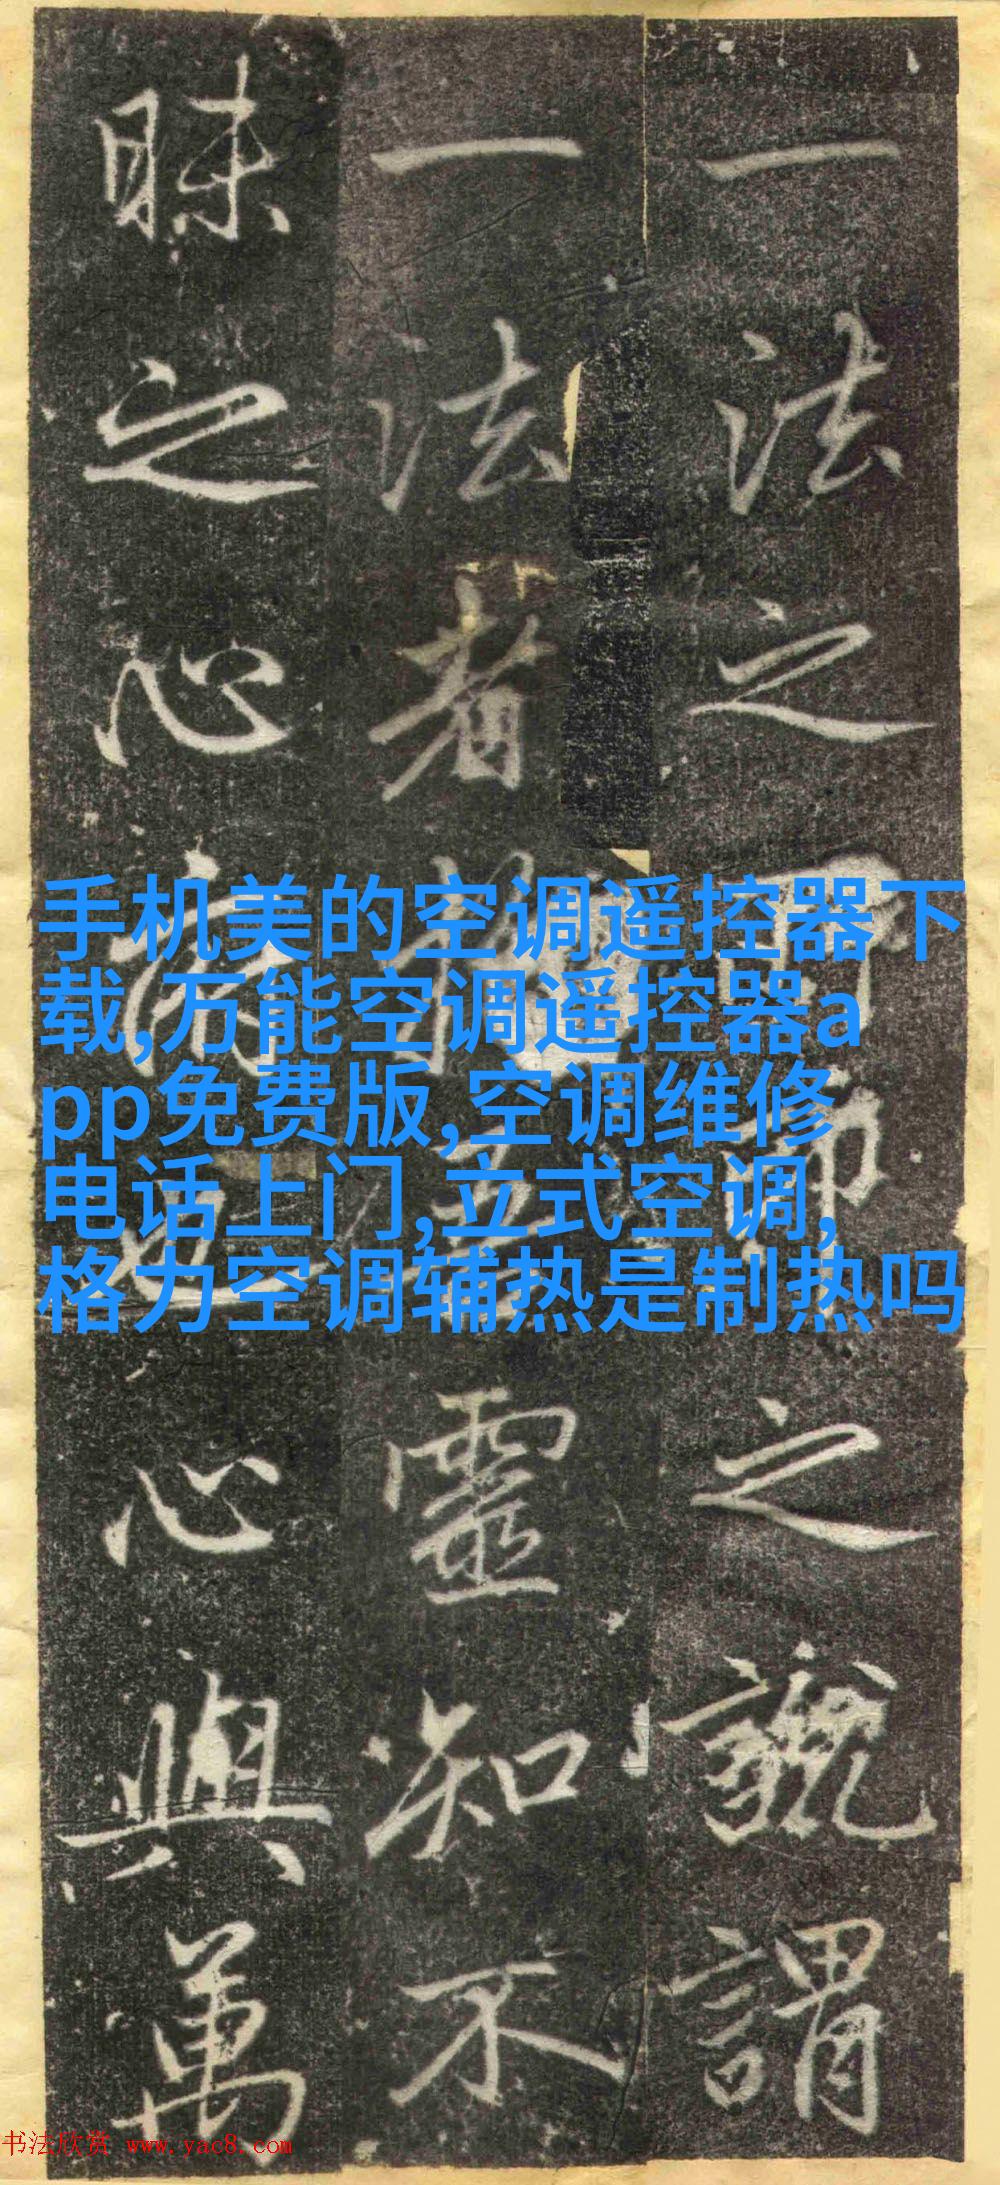 一法之之謂
一法者靈知不
昧之心也心與萬
手机美的空调遥控器下
载,万能空调遥控器a
pp免费版,空调维修
电话上门,立式空调,
格力空调辅热是制热吗
书法欣赏 www.yac8.com